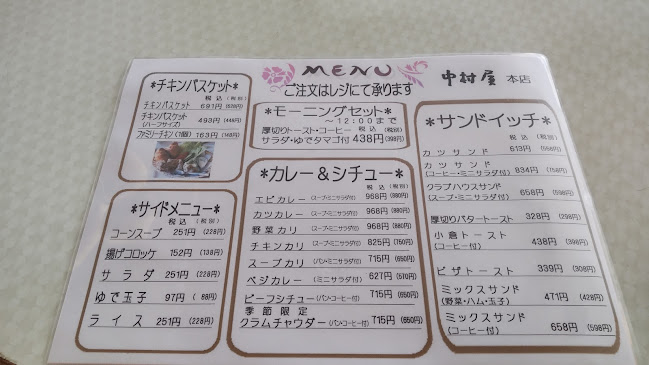 MENU
ご注文はレジにて承ります
中村屋 本店
*チキンバスケット*
税込 (税別)
チキンバスケット 691円 (628円)
チキンバスケット 493円 (448円)
(ハーフサイズ)
ファミリーチキン(1個) 163円 (148円)
*モーニングセット*
~12:00まで
厚切りトースト・コーヒー 税込 (税別)
サラダ・ゆでタマゴ付 438円 (398円)
*サイドメニュー*
税込 (税別)
コーンスープ 251円 (228円)
揚げコロッケ 152円 (138円)
サラダ 251円 (228円)
ゆで玉子 97円 (88円)
ライス 251円 (228円)
*カレー&シチュー*
税込 (税別)
エビカレー (スープ・ミニサラダ付) 968円 (880円)
カツカレー (スープ・ミニサラダ付) 968円 (880円)
野菜カリ (スープ・ミニサラダ付) 968円 (880円)
チキンカリ (スープ・ミニサラダ付) 825円 (750円)
スープカリ (パン・ミニサラダ付) 715円 (650円)
ベジカレー (ミニサラダ付) 627円 (570円)
ビーフシチュー (パン・コーヒー付) 715円 (650円)
季節限定
クラムチャウダー (パン・コーヒー付) 715円 (650円)
*サンドイッチ*
税込 (税別)
カツサンド 613円 (558円)
カツサンド 834円 (758円)
(コーヒー・ミニサラダ付)
クラブハウスサンド 658円 (598円)
(スープ・ミニサラダ付)
厚切りバタートースト 328円 (298円)
小倉トースト 438円 (398円)
(コーヒー付)
ピザトースト 339円 (308円)
ミックスサンド 471円 (428円)
(野菜・ハム・玉子)
ミックスサンド 658円 (598円)
(コーヒー付)